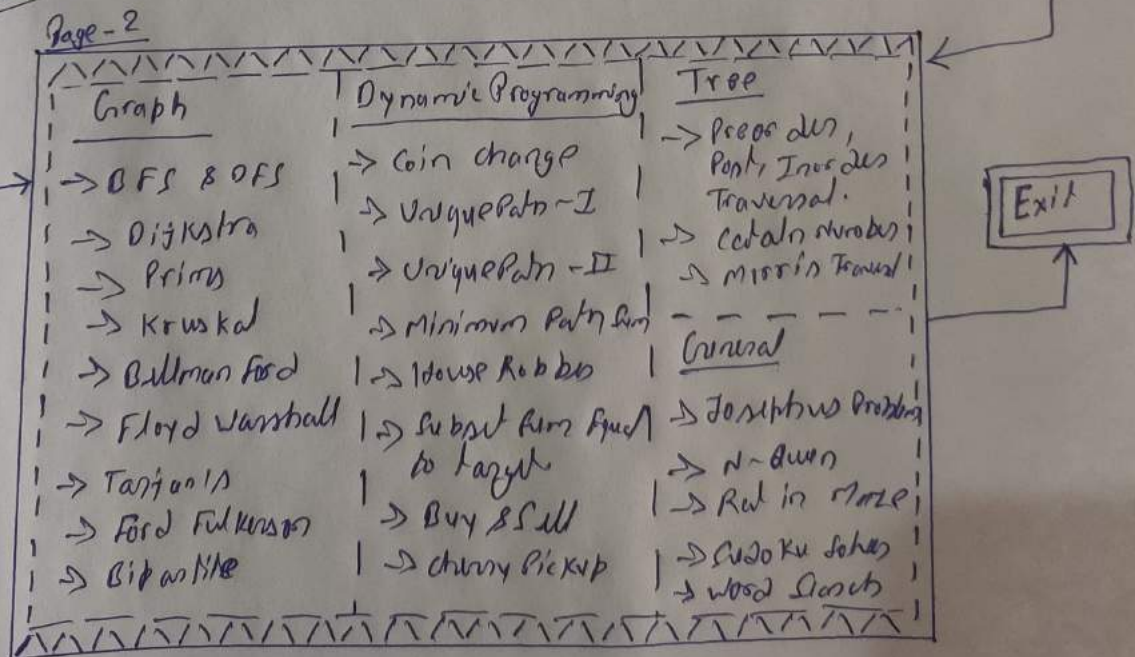 Page-2
Graph
→ BFS & DFS
→ Dijkstra
→ Prims
→ Kruskal
→ Bellman Ford
→ Floyd Warshall
→ Tarjan's
→ Ford Fulkerson
→ Bipartite
Dynamic Programming
→ Coin change
→ UniquePath-I
→ UniquePath-II
→ Minimum Path Sum
→ House Robber
→ Subset Sum Equal
to target
→ Buy & Sell
→ Cherry Pickup
Tree
→ Preorder,
Post, Inorder
Traversal.
→ Catalan Number
→ Morris Traversal
General
→ Josephus Problem
→ N-Queen
→ Rat in Maze
→ Sudoku Solver
→ Word Search
Exit